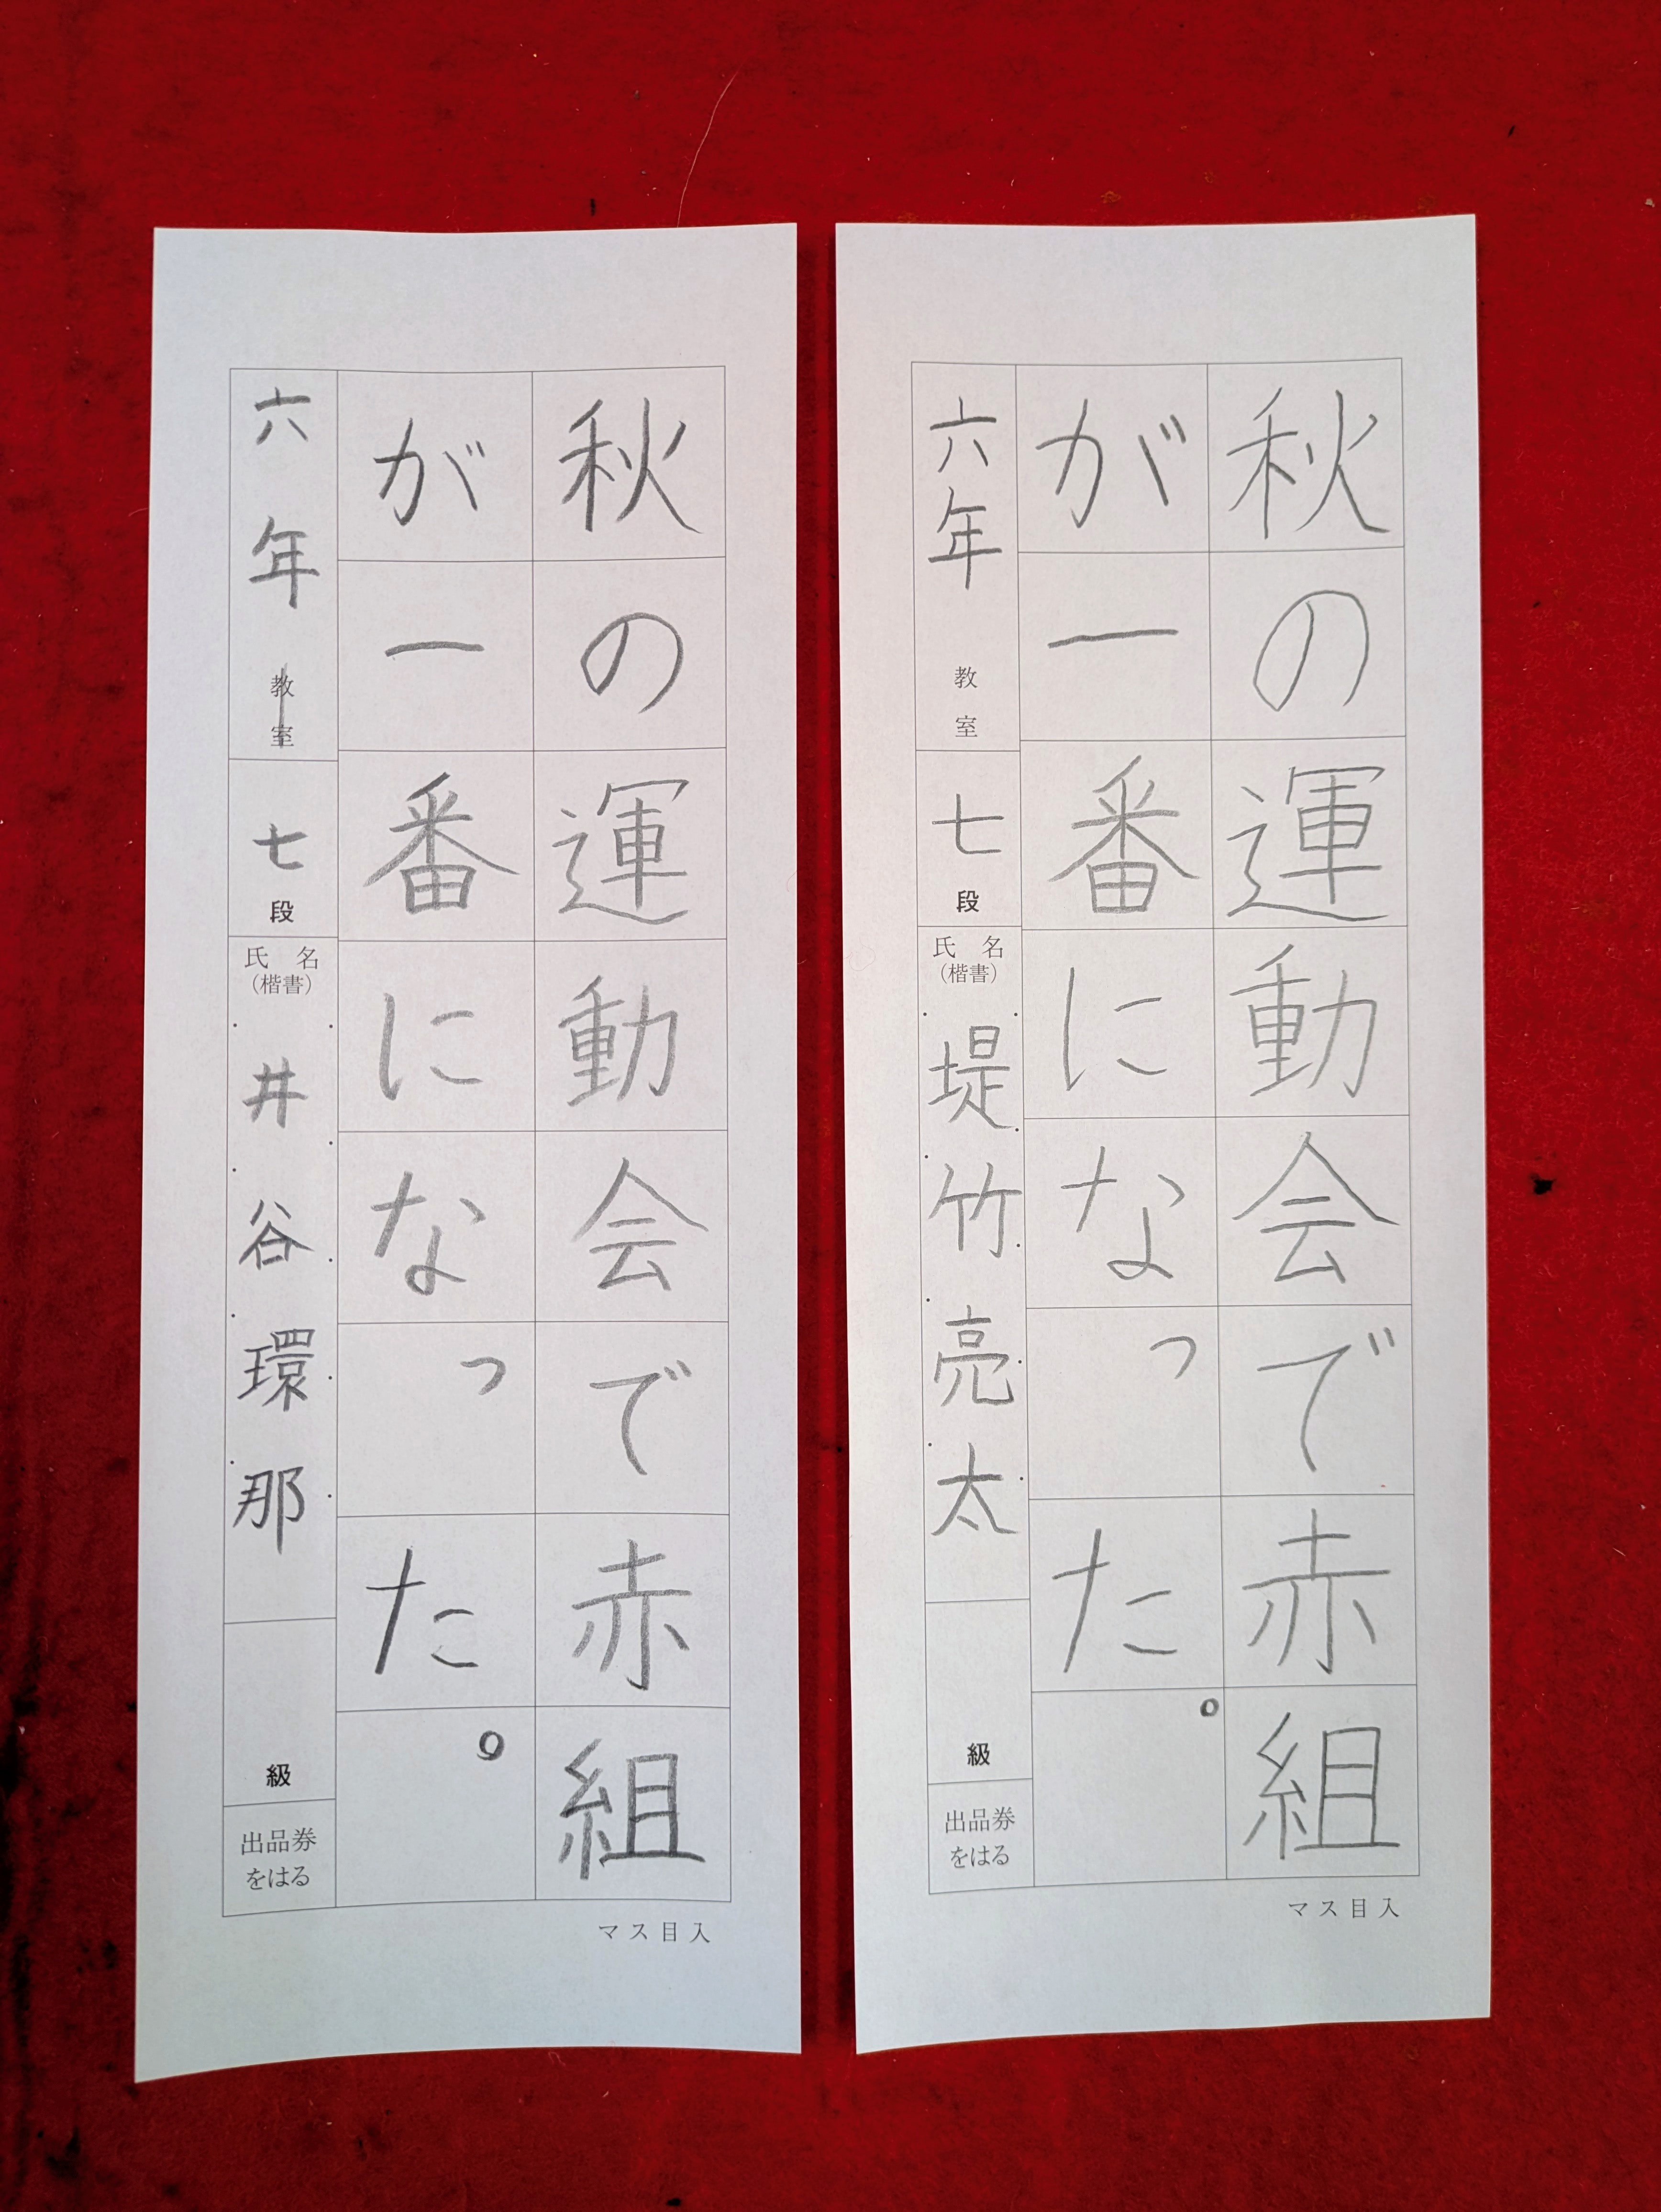 秋の運動会で赤組
が一番になった。
六年 教室
七段
氏名
（楷書）
堤竹亮太
級
出品券
をはる
マス目入
秋の運動会で赤組
が一番になった。
六年 教室
七段
氏名
（楷書）
井谷環那
級
出品券
をはる
マス目入